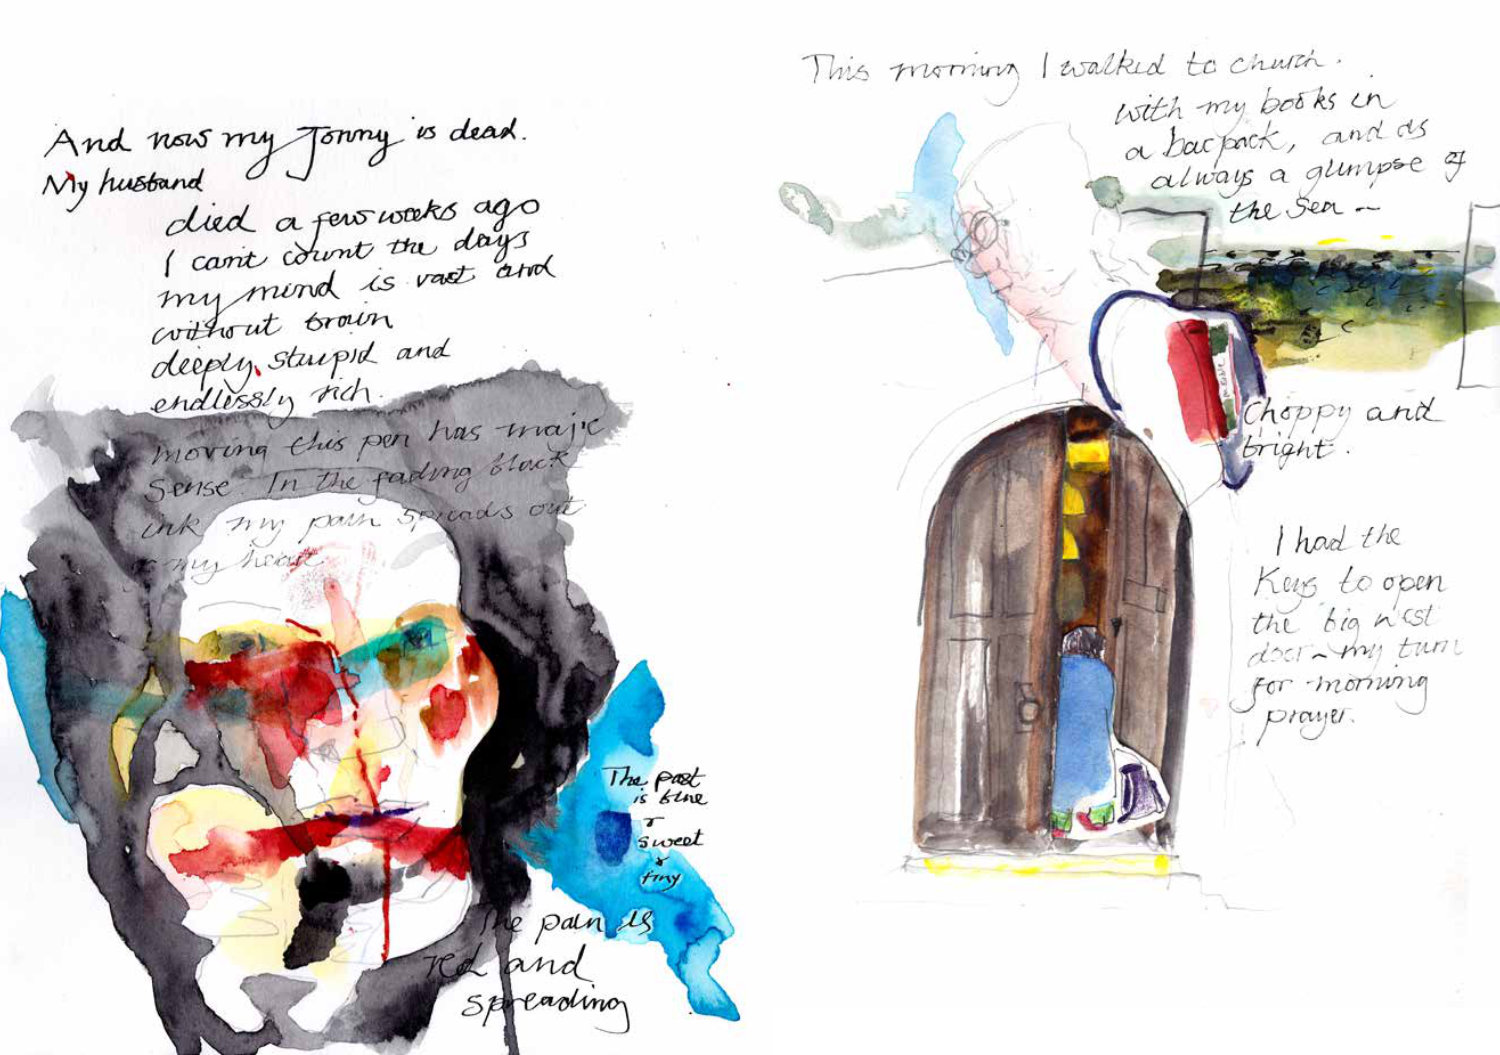 And now my Jonny is dead.
My husband
died a few weeks ago
I cant count the days
my mind is vast and
without brain
deeply stupid and
endlessly rich.
moving this pen has majic
sense. In the fading black
ink my pain spreads out
my heart
The past
is blue
&
sweet
&
tiny
The pain is
red and
spreading
This morning I walked to church.
with my books in
a bacpack, and as
always a glimpse of
the sea ~
Choppy and
bright.
I had the
Keys to open
the big west
door ~ my turn
for morning
prayer.